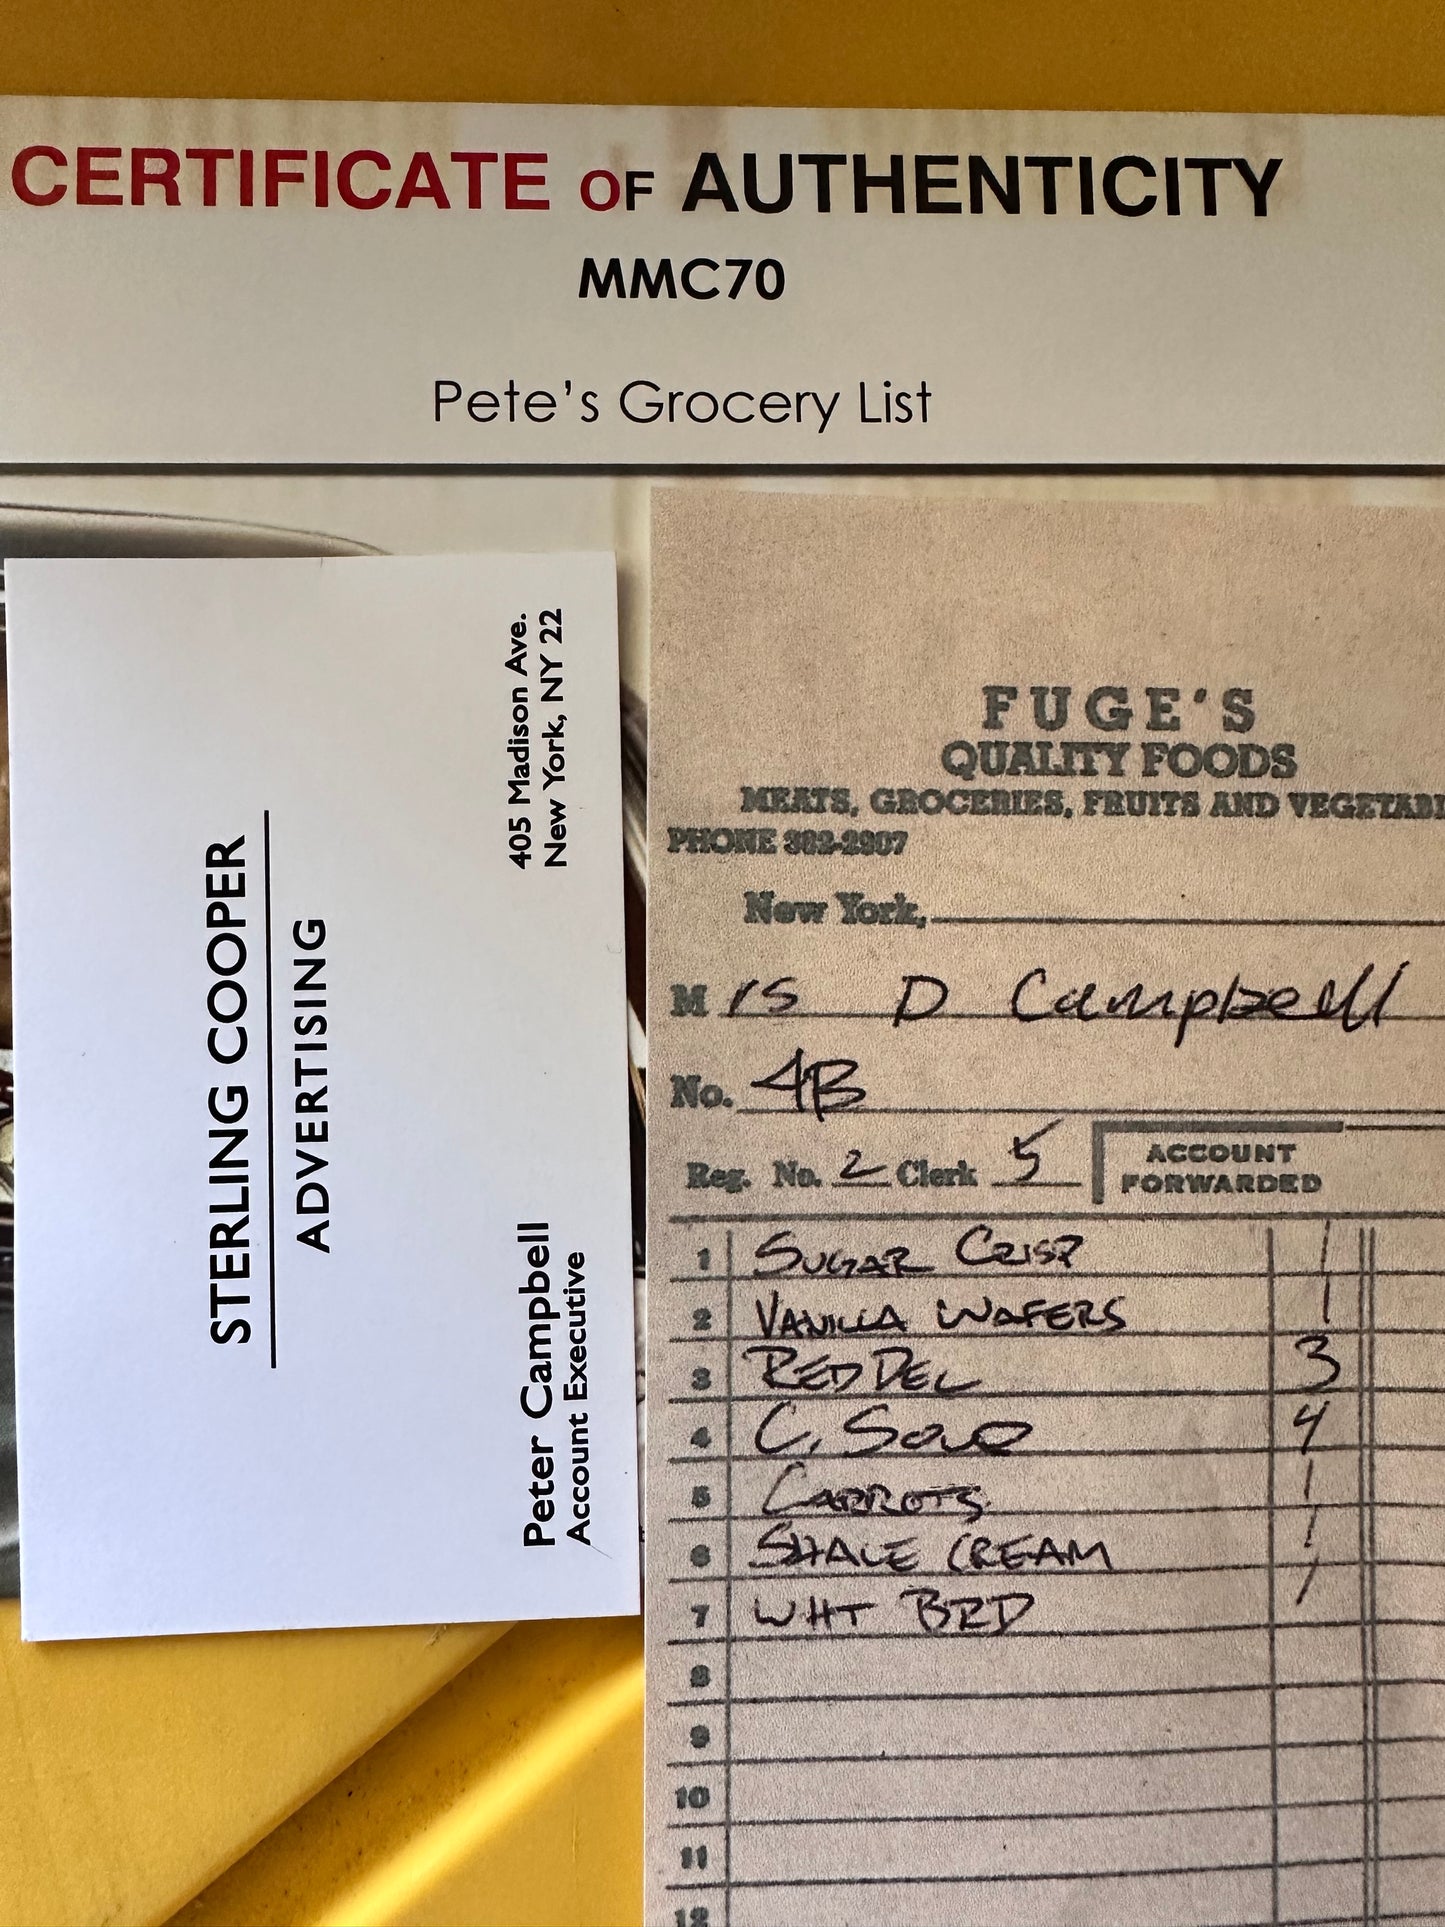 CERTIFICATE OF AUTHENTICITY
MMC70
Pete's Grocery List
STERLING COOPER
ADVERTISING
Peter Campbell
Account Executive
405 Madison Ave.
New York, NY 22
FUGE'S
QUALITY FOODS
MEATS, GROCERIES, FRUITS AND VEGETABL
PHONE 382-2907
New York,
Mrs D Campbell
No. 4B
Reg. No. 2 Clerk 5
ACCOUNT
FORWARDED
1 SUGAR CRISP 1
2 VANILLA WAFERS 1
3 RED DEL 3
4 C. Soup 4
5 CARROTS 1
6 SHAVE CREAM 1
7 WHT BRD 1
8
9
10
11
12